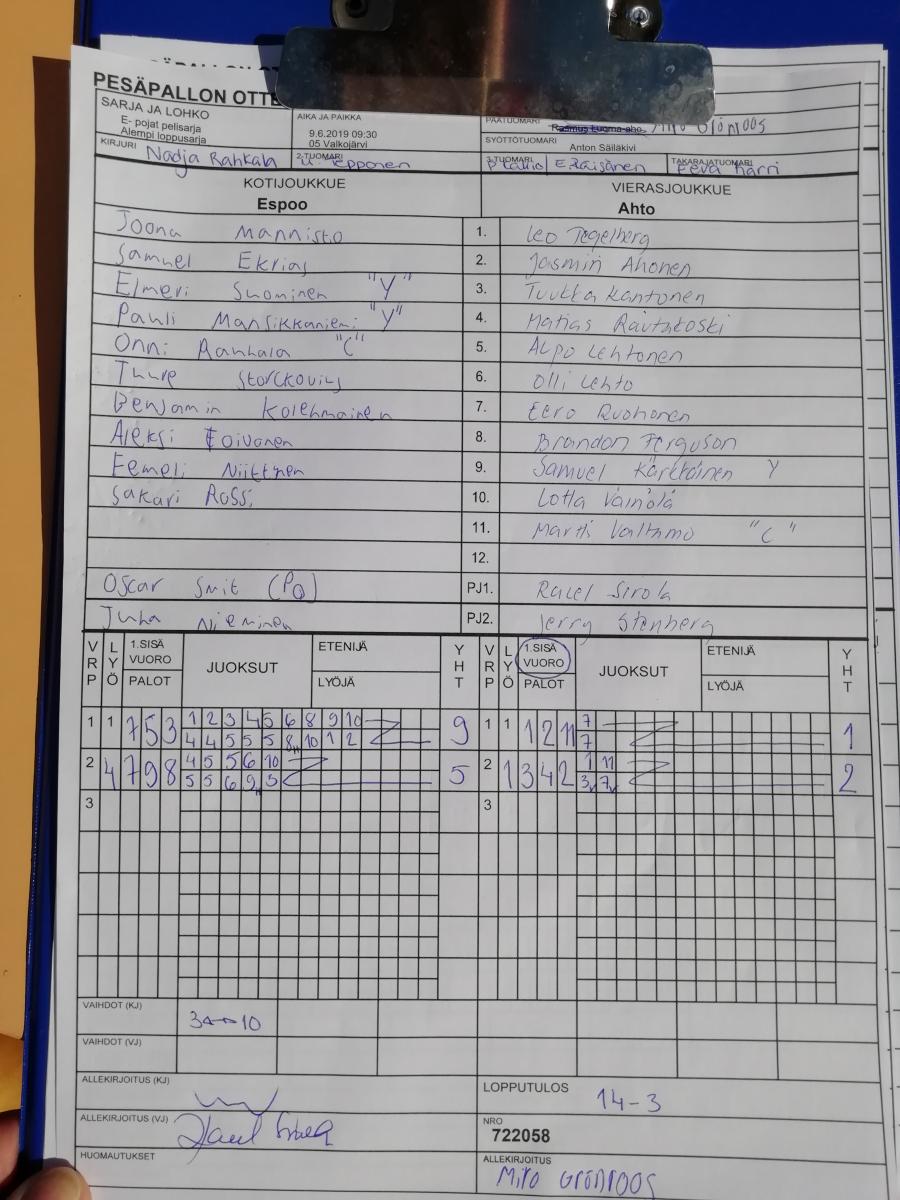 PESÄPALLON OTTE
SARJA JA LOHKO
E- pojat pelisarja
Alempi loppusarja
AIKA JA PAIKKA
9.6.2019 09:30
05 Valkojärvi
PÄÄTUOMARI
Miro Grönroos
SYÖTTÖTUOMARI
Anton Säiläkivi
KIRJURI Nadja Rahkala
2-TUOMARI
3-TUOMARI E.Räisänen
TAKARAJATUOMARI
Eeva Harri
KOTIJOUKKUE
Espoo
VIERASJOUKKUE
Ahto
Joona Mannisto 1. Leo Tegelberg
Samuel Ekrias 2. Jasmin Ahonen
Elmeri Suominen "Y" 3. Tuukka Kantonen
Pauli Mansikkaniemi "Y" 4. Matias Rautakoski
Onni Rauhala "C" 5. Alpo Lehtonen
Thure 6. Olli Lehto
Benjamin Kolehmainen 7. Eero Ruohonen
Aleksi Toivonen 8. Brandon Ferguson
Eemeli Niittynen 9. Samuel Kärkkäinen Y
Sakari Rossi 10. Lotta Väinölä
11. Martti Valtamo "C"
12.
Oscar Smit (PQ) PJ1. Sirola
Juha Nieminen PJ2. Jerry Stenberg
VRP LYÖ 1.SISÄ VUORO PALOT JUOKSUT ETENIJÄ LYÖJÄ YHT VRP LYÖ 1.SISÄ VUORO PALOT JUOKSUT ETENIJÄ LYÖJÄ YHT
1 1 7 5 3 1 2 3 4 5 6 8 9 10 9 1 1 1 2 11 7 1
4 4 5 5 5 8 10 1 2 7
2 4 7 9 8 4 5 5 6 10 5 2 1 3 4 2 1 11 2
5 5 6 9 5 3 7
3 3
VAIHDOT (KJ) 3↔10
VAIHDOT (VJ)
ALLEKIRJOITUS (KJ)
LOPPUTULOS 14-3
ALLEKIRJOITUS (VJ)
NRO
722058
HUOMAUTUKSET
ALLEKIRJOITUS
Miro Grönroos